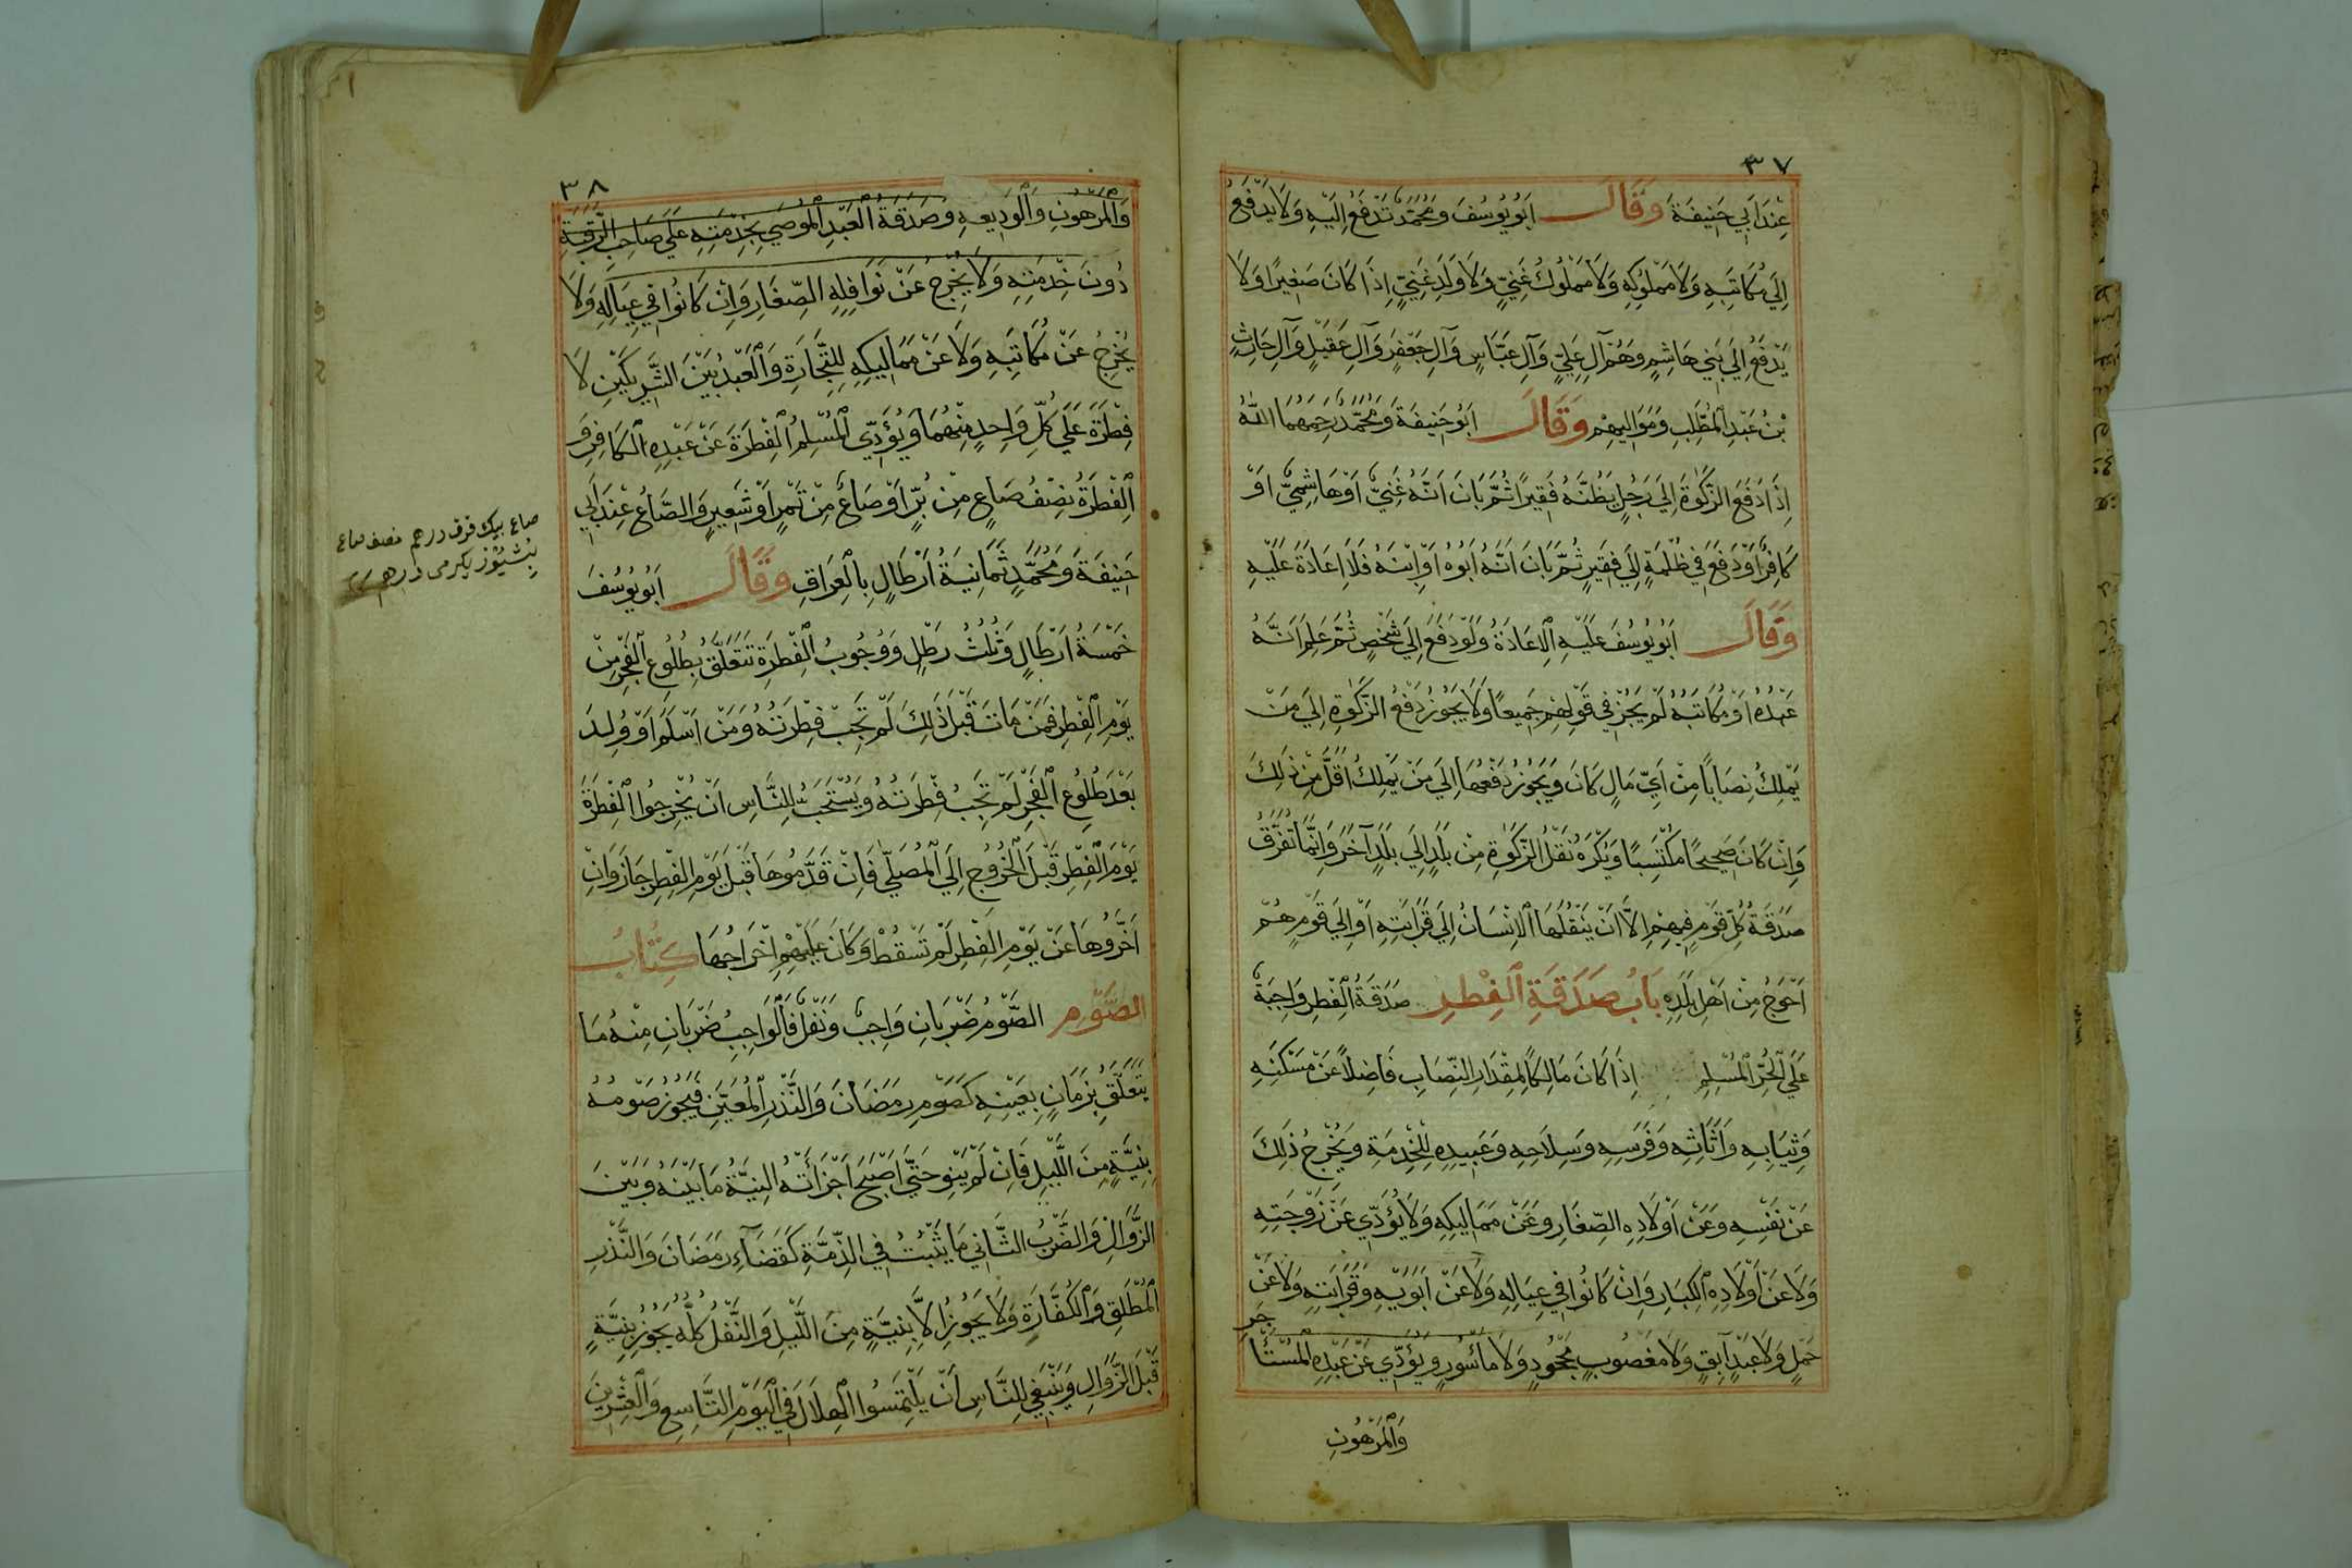 ٣٧
عِنْدَ اَبِي حَنِيفَةَ وَقَالَ اَبُو يُوسُفَ وَمُحَمَّدٌ تُدْفَعُ اِلَيْهِ وَلَا يَدْفَعُ
اِلَي مُكَاتَبِهِ وَلَا مَمْلُوكِهِ وَلَا مَمْلُوكِ غَنِيٍّ وَلَا وَلَدِ غَنِيٍّ اِذَا كَانَ صَغِيرًا وَلَا
يَدْفَعُ اِلَي بَنِي هَاشِمٍ وَهُمْ آلِ عَلِيٍّ وَآلِ عَبَّاسٍ وَآلِ جَعْفَرٍ وَآلِ عَقِيْلٍ وَآلِ حَارِثٍ
بْنُ عَبْدِ الْمُطَّلِبِ وَمَوَالِيهِمْ وَقَالَ اَبُو حَنِيفَةَ وَمُحَمَّدٌ رَحِمَهُمَا اللّٰهُ
اِذَا دَفَعَ الزَّكٰوةَ اِلَي رَجُلٍ يَظُنُّهُ فَقِيرًا ثُمَّ بَانَ اَنَّهُ غَنِيٌّ اَوْ هَاشِمِيٌّ اَوْ
كَافِرٌ اَوْ دَفَعَ فِي ظُلْمَةٍ اِلَي فَقِيرٍ ثُمَّ بَانَ اَنَّهُ اَبُوهُ اَوْ اِبْنُهُ فَلَا اِعَادَةَ عَلَيْهِ
وَقَالَ اَبُو يُوسُفَ عَلَيْهِ الْاِعَادَةُ وَلَوْ دَفَعَ اِلَي شَخْصٍ ثُمَّ عَلِمَ اَنَّهُ
عَبْدُهُ اَوْ مُكَاتَبُهُ لَمْ يَجُزْ فِي قَوْلِهِمْ جَمِيعًا وَلَا يَجُوزُ دَفْعُ الزَّكٰوةِ اِلَي مَنْ
يَمْلِكُ نِصَابًا مِنْ اَيِّ مَالٍ كَانَ وَيَجُوزُ دَفْعُهَا اِلَي مَنْ يَمْلِكُ اَقَلَّ مِنْ ذٰلِكَ
وَاِنْ كَانَ صَحِيحًا مُكْتَسِبًا وَيُكْرَهُ نَقْلُ الزَّكٰوةِ مِنْ بَلَدٍ اِلَي بَلَدٍ آخَرَ وَاِنَّمَا تُفَرَّقُ
صَدَقَةُ كُلِّ قَوْمٍ فِيهِمْ اِلَّا اَنْ يَنْقُلَهَا الْاِنْسَانُ اِلَي قَرَابَتِهِ اَوْ اِلَي قَوْمٍ هُمْ
اَحْوَجُ مِنْ اَهْلِ بَلَدِهِ بَابُ صَدَقَةِ الْفِطْرِ صَدَقَةُ الْفِطْرِ وَاجِبَةٌ
عَلَي الْحُرِّ الْمُسْلِمِ اِذَا كَانَ مَالِكًا لِمِقْدَارِ النِّصَابِ فَاضِلًا عَنْ مَسْكَنِهِ
وَثِيَابِهِ وَاَثَاثِهِ وَفَرَسِهِ وَسِلَاحِهِ وَعَبِيدِهِ لِلْخِدْمَةِ وَيُخْرِجُ ذٰلِكَ
عَنْ نَفْسِهِ وَعَنْ اَوْلَادِهِ الصِّغَارِ وَعَنْ مَمَالِيكِهِ وَلَا يُؤَدِّي عَنْ زَوْجَتِهِ
وَلَا عَنْ اَوْلَادِهِ الْكِبَارِ وَاِنْ كَانُوا فِي عِيَالِهِ وَلَا عَنْ اَبَوَيْهِ وَقَرَابَتِهِ وَلَا عَنْ
حَمْلٍ وَلَا عَبْدٍ آبِقٍ وَلَا مَغْصُوبٍ مَجْحُودٍ وَلَا مَاْسُورٍ وَيُؤَدِّي عَنْ عَبْدِهِ الْمُسْتَأْ
جَرِ
وَالْمَرْهُونِ
٣٨
وَالْمَرْهُونِ وَالْوَدِيعَةِ وَصَدَقَةُ الْعَبْدِ الْمُوصَي بِخِدْمَتِهِ عَلَي صَاحِبِ الرَّقَبَةِ
دُونَ خِدْمَتِهِ وَلَا يُخْرِجُ عَنْ نَوَافِلِهِ الصِّغَارِ وَاِنْ كَانُوا فِي عِيَالِهِ وَلَا
يُخْرِجُ عَنْ مُكَاتَبِهِ وَلَا عَنْ مَمَالِيكِهِ لِلتِّجَارَةِ وَالْعَبْدُ بَيْنَ الشَّرِيكَيْنِ لَا
فِطْرَةَ عَلَي كُلِّ وَاحِدٍ مِنْهُمَا وَيُؤَدِّي الْمُسْلِمُ الْفِطْرَةَ عَنْ عَبْدِهِ الْكَافِرِ وَ
الْفِطْرَةُ نِصْفُ صَاعٍ مِنْ بُرٍّ اَوْ صَاعٌ مِنْ تَمْرٍ اَوْ شَعِيرٍ وَالصَّاعُ عِنْدَ اَبِي
حَنِيفَةَ وَمُحَمَّدٍ ثَمَانِيَةُ اَرْطَالٍ بِالْعِرَاقِ وَقَالَ اَبُو يُوسُفَ
خَمْسَةُ اَرْطَالٍ وَثُلُثُ رَطْلٍ وَوُجُوبُ الْفِطْرَةِ تَتَعَلَّقُ بِطُلُوعِ الْفَجْرِ مِنْ
يَوْمِ الْفِطْرِ فَمَنْ مَاتَ قَبْلَ ذٰلِكَ لَمْ تَجِبْ فِطْرَتُهُ وَمَنْ اَسْلَمَ اَوْ وُلِدَ
بَعْدَ طُلُوعِ الْفَجْرِ لَمْ تَجِبْ فِطْرَتُهُ وَيُسْتَحَبُّ لِلنَّاسِ اَنْ يُخْرِجُوا الْفِطْرَةَ
يَوْمَ الْفِطْرِ قَبْلَ الْخُرُوجِ اِلَي الْمُصَلَّي فَاِنْ قَدَّمُوهَا قَبْلَ يَوْمِ الْفِطْرِ جَازَ وَاِنْ
اَخَّرُوهَا عَنْ يَوْمِ الْفِطْرِ لَمْ تَسْقُطْ وَكَانَ عَلَيْهِمْ اِخْرَاجُهَا كِتَابُ
الصَّوْمِ الصَّوْمُ ضَرْبَانِ وَاجِبٌ وَنَفْلٌ فَالْوَاجِبُ ضَرْبَانِ مِنْهُ مَا
يَتَعَلَّقُ بِزَمَانٍ بِعَيْنِهِ كَصَوْمِ رَمَضَانَ وَالنَّذْرِ الْمُعَيَّنِ فَيَجُوزُ صَوْمُهُ
بِنِيَّةٍ مِنَ اللَّيْلِ فَاِنْ لَمْ يَنْوِ حَتَّي اَصْبَحَ اَجْزَأَتْهُ النِّيَّةُ مَا بَيْنَهُ وَبَيْنَ
الزَّوَالِ وَالضَّرْبُ الثَّانِي مَا يَثْبُتُ فِي الذِّمَّةِ كَقَضَآءِ رَمَضَانَ وَالنَّذْرِ
الْمُطْلَقِ وَالْكَفَّارَةِ وَلَا يَجُوزُ اِلَّا بِنِيَّةٍ مِنَ اللَّيْلِ وَالنَّفْلُ كُلُّهُ يَجُوزُ بِنِيَّةٍ
قَبْلَ الزَّوَالِ وَيَنْبَغِي لِلنَّاسِ اَنْ يَلْتَمِسُوا الْهِلَالَ فِي الْيَوْمِ التَّاسِعِ وَالْعِشْرِينَ
صاع بيك قرق درهم نصف صاع
بشيوز يكرمى درهم